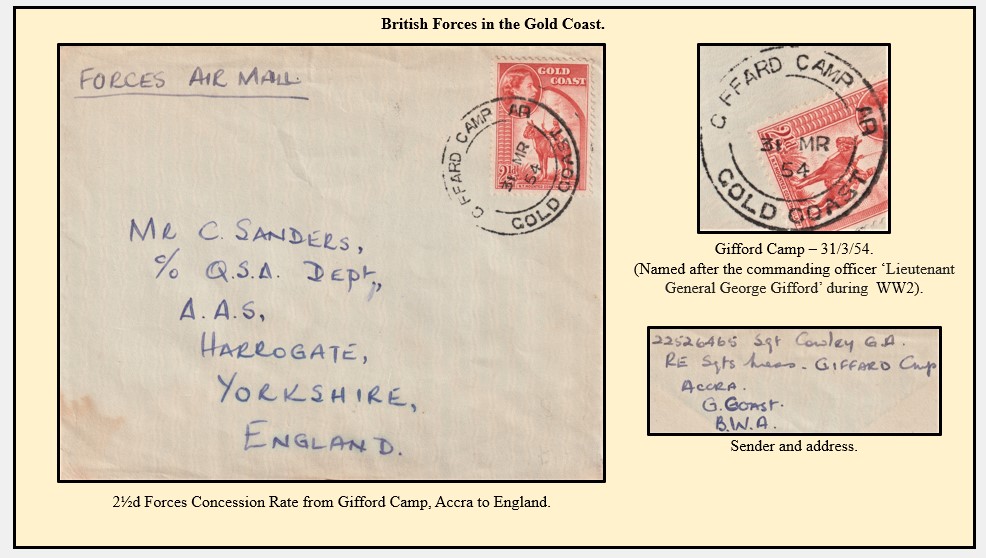 British Forces in the Gold Coast.
FORCES AIR MAIL.
GOLD COAST
2½d
GIFFARD CAMP AR
31 MR
54
GOLD COAST
MR C. SANDERS,
c/o Q.S.A. DEPT,
A.A.S,
HARROGATE,
YORKSHIRE,
ENGLAND.
2½d Forces Concession Rate from Gifford Camp, Accra to England.
GIFFARD CAMP AR
31 MR
54
GOLD COAST
2½d
Gifford Camp – 31/3/54.
(Named after the commanding officer ‘Lieutenant
General George Gifford’ during WW2).
22526465 Sgt Cowley G.A.
RE Sgts Mess. GIFFARD Cmp
ACCRA.
G. COAST.
B.W.A.
Sender and address.